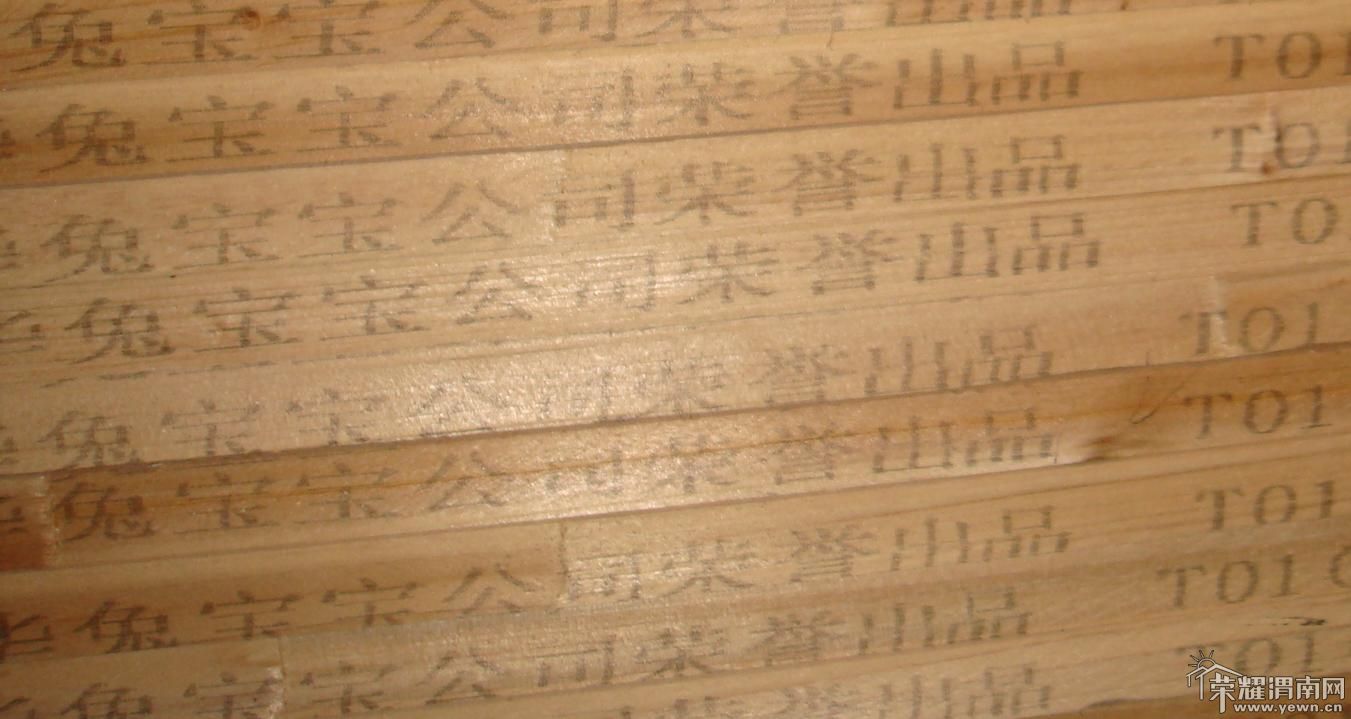 兔宝宝公司荣誉出品
兔宝宝公司荣誉出品 T01
兔宝宝公司荣誉出品 T01
兔宝宝公司荣誉出品 TO
兔宝宝公司荣誉出品 T01
兔宝宝公司荣誉出品 T01
兔宝宝公司荣誉出品 T01
兔宝宝公司荣誉出品 T01
兔宝宝公司荣誉出品 T01
荣耀渭南网
www.yewn.cn